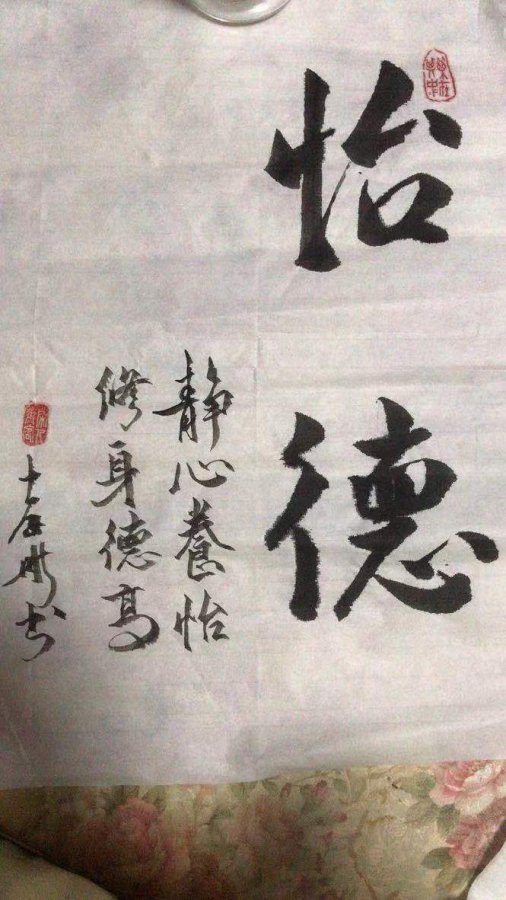 怡德
静心養怡
修身德高
書